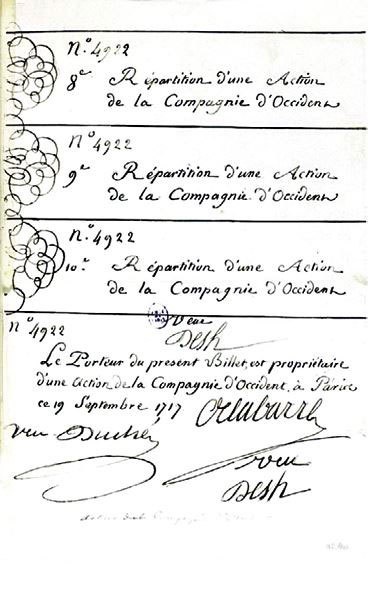 N.º 4922
8.e Répartition d'une Action
de la Compagnie d'Occident
N.º 4922
9.e Répartition d'une Action
de la Compagnie d'Occident
N.º 4922
10.e Répartition d'une Action
de la Compagnie d'Occident
N.º 4922
Veue
Desh
Le Porteur du present Billet, est propriétaire
d'une Action de la Compagnie d'Occident, à Paris
ce 19 Septembre 1717
veu
veu
Desh